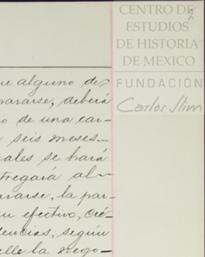 CENTRO DE
ESTUDIOS
DE HISTORIA
DE MEXICO
FUNDACIÓN
Carlos Slim
ue alguno de
pararse, deberá
o de una car-
seis meses.
uales se hará
tregará al
ararse, la par-
en efectivo, cré-
dencias, según
elle la nego-